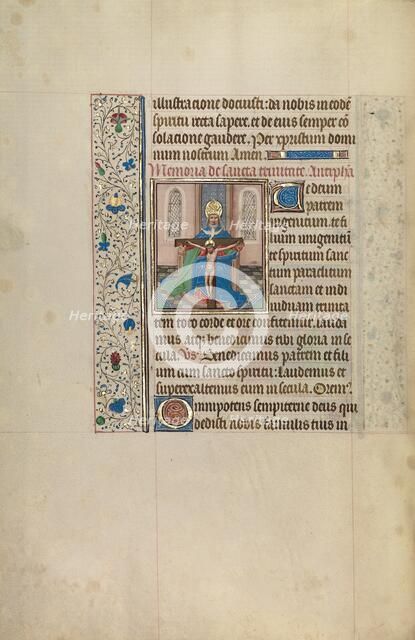 illustracione docuisti: da nobis in eodē
spiritu recta sapere, et de eius semper cō
solacione gaudere. Per xpristum domi
num nostrum Amen
Memoria de sancta trinitate. Antipha
Te deum
patrem
ingenitum. te fi
lium unigenitū
te spiritum sanc
tum paraclitum
sanctam et indi
uiduam trinita
tem toto corde et ore confitemur. lauda
mus atqȝ benedicimus tibi gloria in se
cula. Vs Benedicamus patrem et fili
um cum sancto spiritu: Laudemus et
superexaltemus eum in secula. Orem
Omnipotens sempiterne deus qui
dedisti nobis famulis tuis in
Heritage
Heritage
Heritage
Heritage